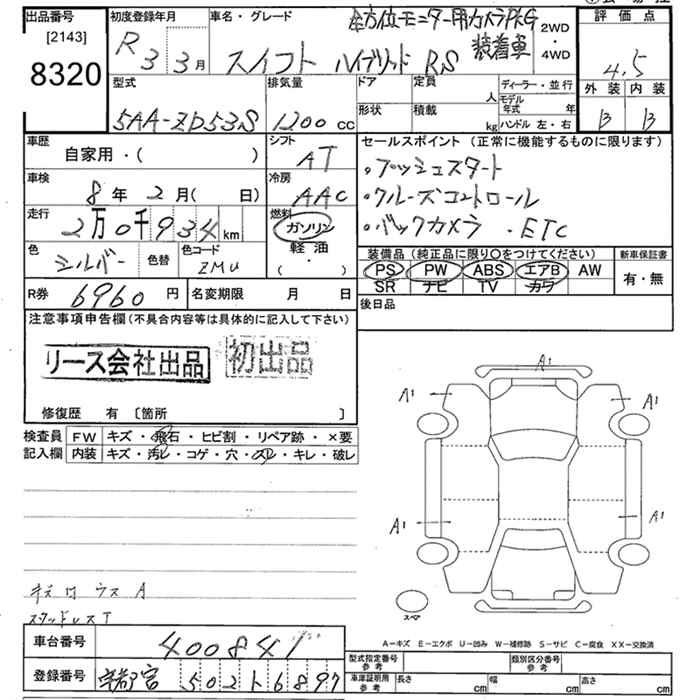 出品番号
[2143]
8320
初度登録年月
R 3 3 月
車名・グレード
全方位モニター用カメラPKG
装着車
スイフト ハイブリッド RS
2WD
4WD
評価点
4.5
外装 内装
B B
型式
5AA-ZD53S
排気量
1200 cc
ドア
形状
定員
人
積載
kg
ディーラー・並行
モデル年式 年
ハンドル 左・右
車歴
自家用・( )
シフト
AT
車検
8 年 2 月( 日)
冷房
AAC
走行
2万0千934 km
燃料
ガソリン
軽油
( ・ )
色
シルバー
色替
色コード
ZMU
セールスポイント (正常に機能するものに限ります)
・プッシュスタート
・クルーズコントロール
・バックカメラ ・ETC
装備品 (純正品に限り○をつけてください)
PS PW ABS エアB AW
SR ナビ TV カワ
新車保証書
有・無
R券 6960 円
名変期限 月 日
後日品
注意事項申告欄(不具合内容等は具体的に記入して下さい)
リース会社出品
初出品
修復歴 有 〔箇所 〕
検査員
記入欄
FW キズ・飛石・ヒビ割・リペア跡・×要
内装 キズ・汚レ・コゲ・穴・スレ・キレ・破レ
A1
A1
A1
A1
A1
スペア
スタッドレスT
A-キズ E-エクボ U-凹み W-補修跡 S-サビ C-腐食 XX-交換済
車台番号 400841
登録番号 宇都宮 502 ト 6897
型式指定番号
参考
類別区分番号
参考
車庫証明用
参考
長さ cm
幅 cm
高さ cm